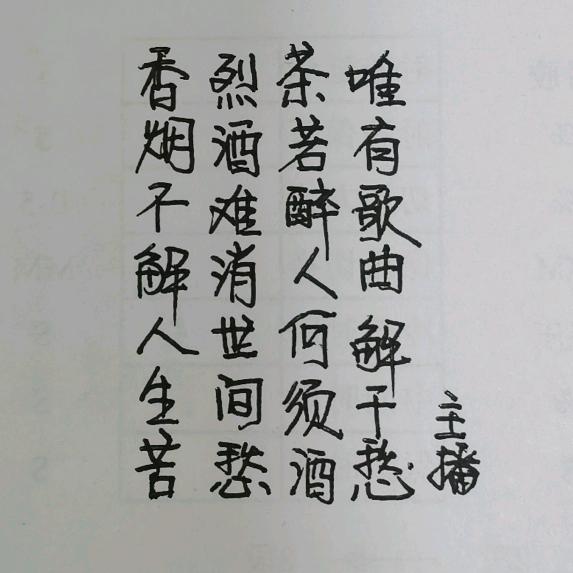 香烟不解人生苦
烈酒难消世间愁
茶若醉人何须酒
唯有歌曲解千愁
主播